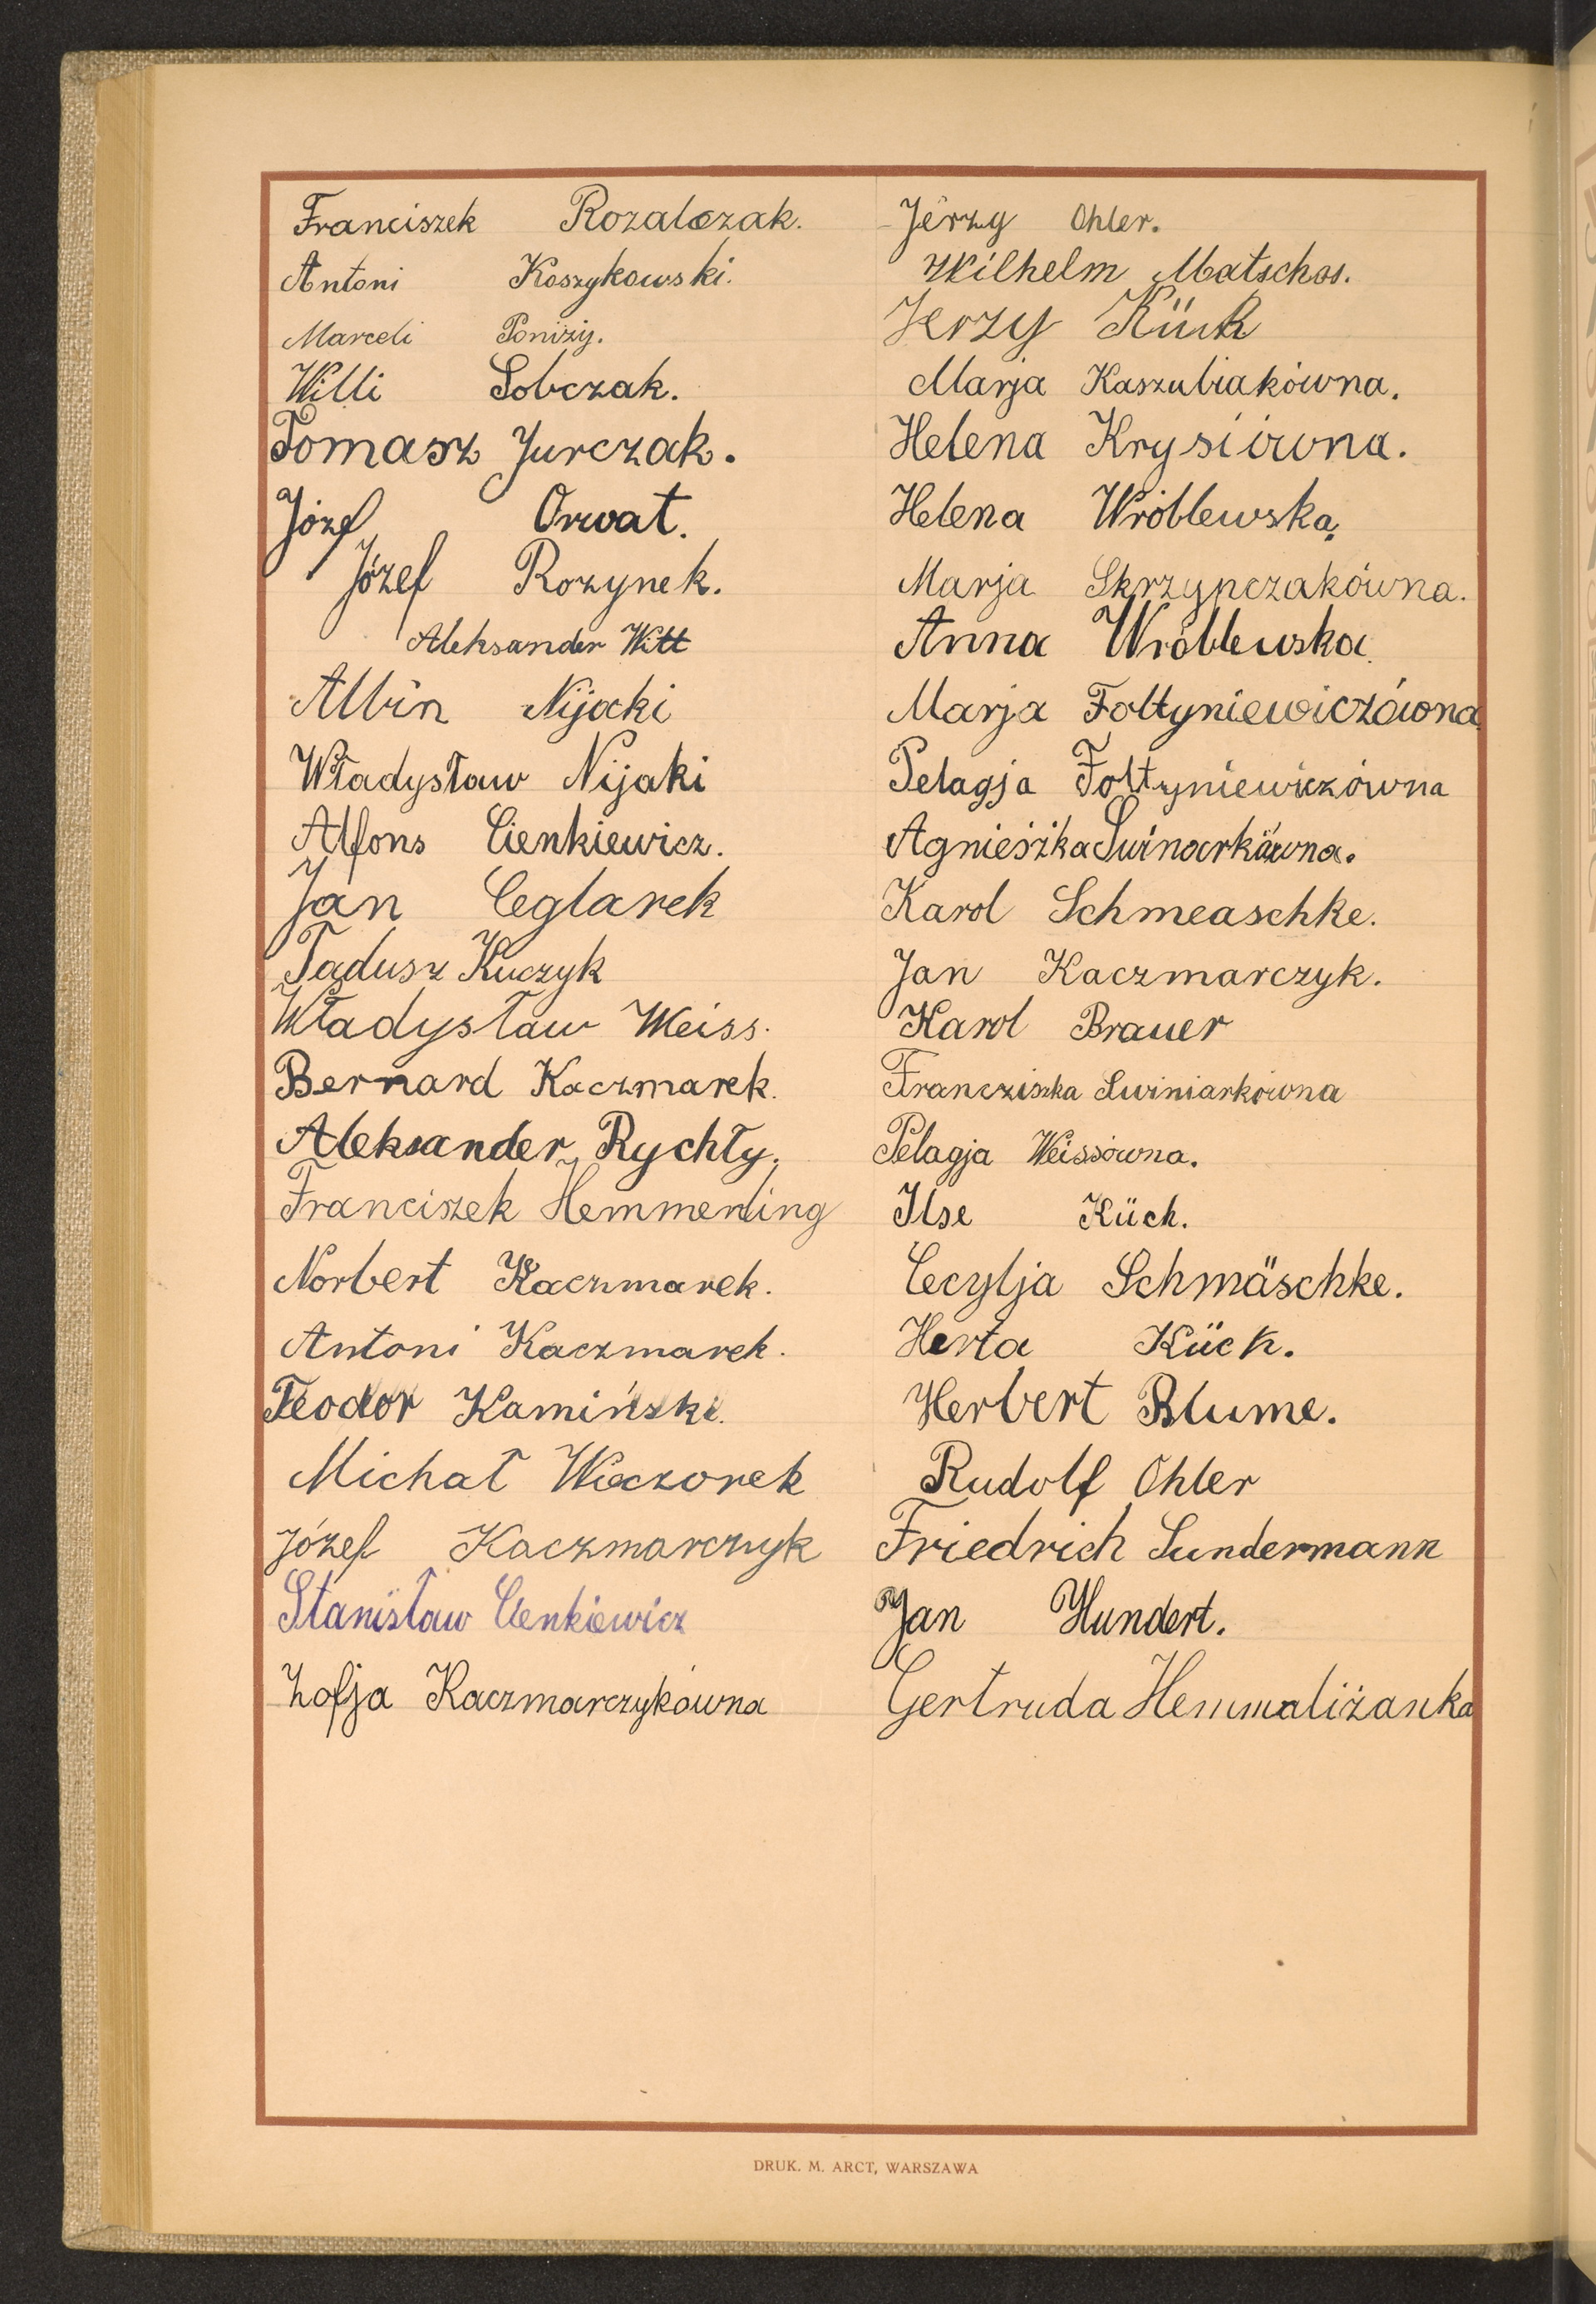 Franciszek Rozalczak.
Antoni Koszykowski.
Marceli Poniży.
Willi Sobczak.
Tomasz Jurczak.
Józef Orwat.
Józef Rozynek.
Aleksander Witt
Albin Nijaki
Władysław Nijaki
Alfons Cienkiewicz.
Jan Ceglarek
Tadusz Kuczyk
Władysław Weiss.
Bernard Kaczmarek.
Aleksander Rychły.
Franciszek Hemmerling
Norbert Kaczmarek.
Antoni Kaczmarek.
Teodor Kamiński.
Michał Wieczorek
Józef Kaczmarczyk
Stanisław Cienkiewicz
Zofja Kaczmarczykówna
Jerzy Ohler.
Wilhelm Matschos.
Jerzy Kück
Marja Kaszubiakówna.
Helena Krysiówna.
Helena Wróblewska.
Marja Skrzypczakówna.
Anna Wróblewska.
Marja Fołtyniewiczówna
Pelagja Fołtyniewiczówna
Agnieszka Swinarkówna.
Karol Schmeaschke.
Jan Kaczmarczyk.
Karol Brauer
Francziszka Swiniarkówna
Pelagja Weissówna.
Ilse Küch.
Cecylja Schmäschke.
Herta Kück.
Herbert Blume.
Rudolf Ohler
Friedrich Sundermann
Jan Hundert.
Gertruda Hemmaliżanka
DRUK. M. ARCT, WARSZAWA